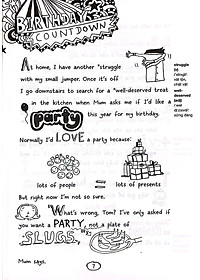 BIRTHDAY
COUNTDOWN
At home, I have another *struggle
with my small jumper. Once it's off
I go downstairs to search for a *well-deserved treat
in the kitchen when Mum asks me if I'd like a
party this year for my birthday.
Normally I'd LOVE a party because:
lots of people = lots of presents
But right now I'm not so sure.
"What's wrong, Tom? I've only asked if
you want a PARTY, not a plate of
SLUGS,"
Mum says.
7
struggle
well-
deserved
xứng đáng